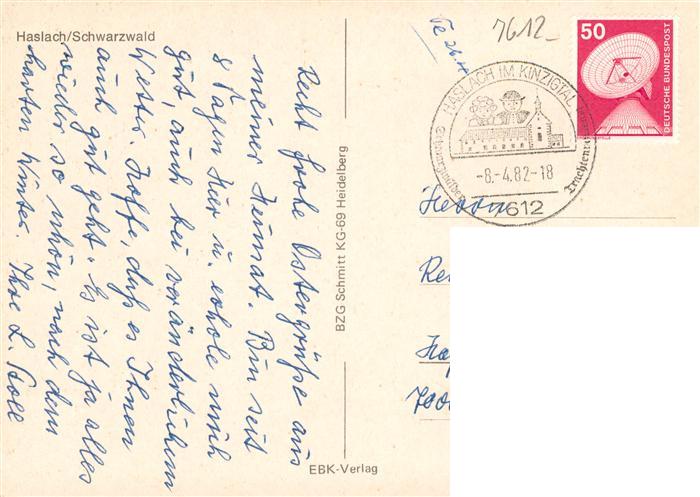 Haslach/Schwarzwald
Recht frohe Ostergrüße aus
meiner Heimat. Bin seit
8 Tagen hier u. erhole mich
gut, auch bei veränderlichem
Wetter. Hoffe, daß es Ihnen
auch gut geht. Es ist ja alles
wieder so schön, nach dem
harten Winter. Ihre L. Stoll
BZG Schmitt KG-69 Heidelberg
EBK-Verlag
7612
50
DEUTSCHE BUNDESPOST
HASLACH IM KINZIGTAL
-8.-4.82-18
7612
Herrn
700